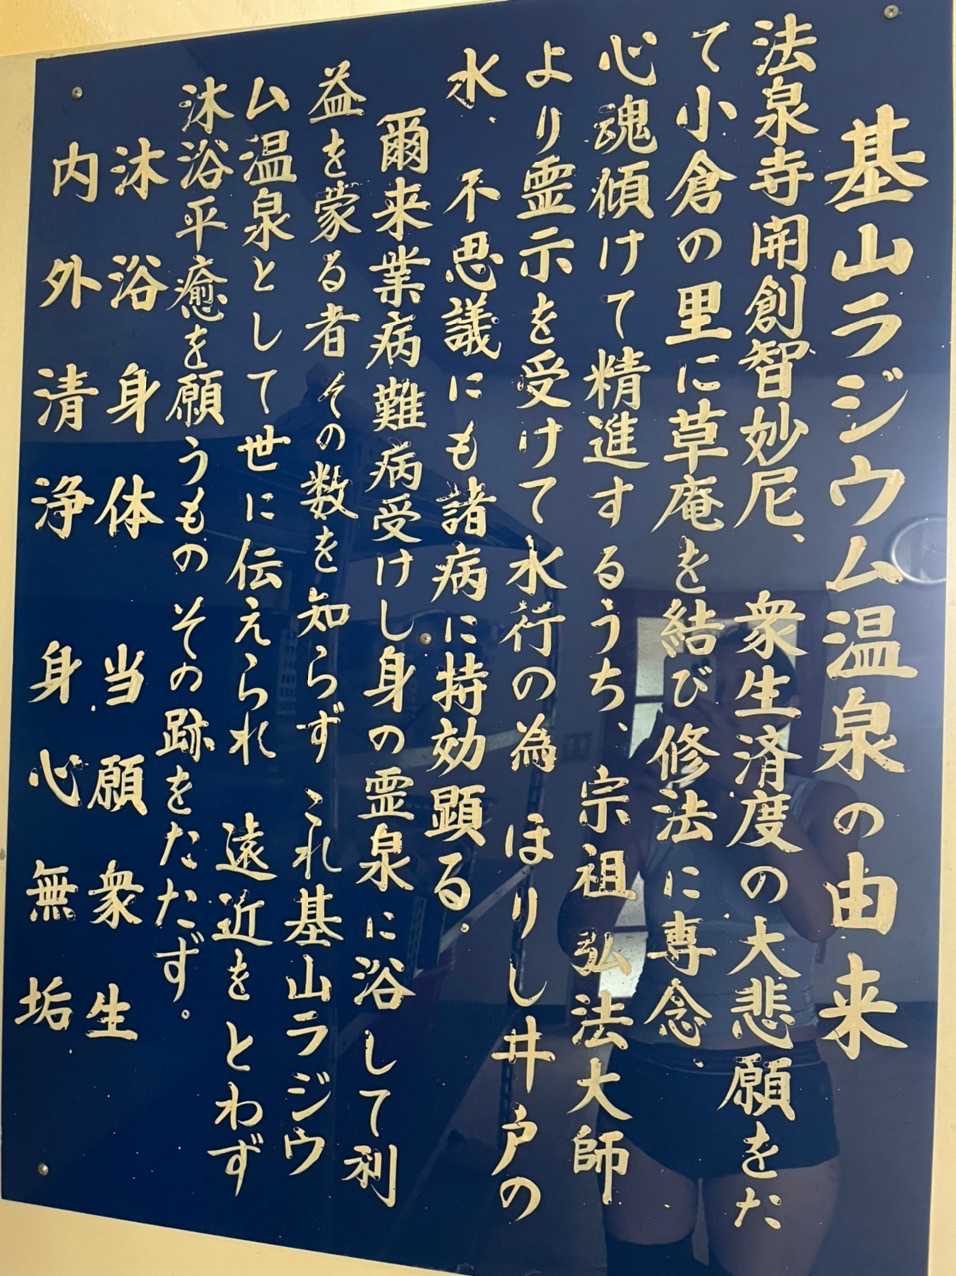 基山ラジウム温泉の由来
法泉寺開創智妙尼、衆生済度の大悲願をた
て小倉の里に草庵を結び修法に専念
心魂傾けて精進するうち、宗祖弘法大師
より霊示を受けて水行の為ほりし井戸の
水、不思議にも諸病に持効顕る。
爾来業病難病受けし身の霊泉に浴して利
益を蒙る者その数を知らずこれ基山ラジウ
ム温泉として世に伝えられ遠近をとわず
沐浴平癒を願うものその跡をたたず。
沐浴身体当願衆生
内外清浄身心無垢